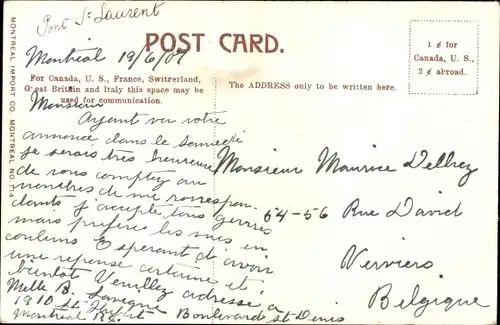 Pont St Laurent
Montréal 19/6/07
POST CARD.
1¢ for
Canada, U. S.,
2¢ abroad.
For Canada, U. S., France, Switzerland,
Great Britain and Italy this space may be
used for communication.
The ADDRESS only to be written here.
MONTREAL IMPORT CO. MONTREAL NO. 714
Monsieur
Ayant vu votre
annonce dans le Samedi
je serais très heureuse
de vous compter au
nombres de me correspon
dants j'accepte tous genres
mais préfère les vues en
couleurs Esperant d'avoir
une reponse certaine et
bientot Veuillez adresse a
Melle B.
1910 Boulevard St Denis
Montréal
Monsieur Maurice Delhez
64-56 Rue David
Verviers
Belgique